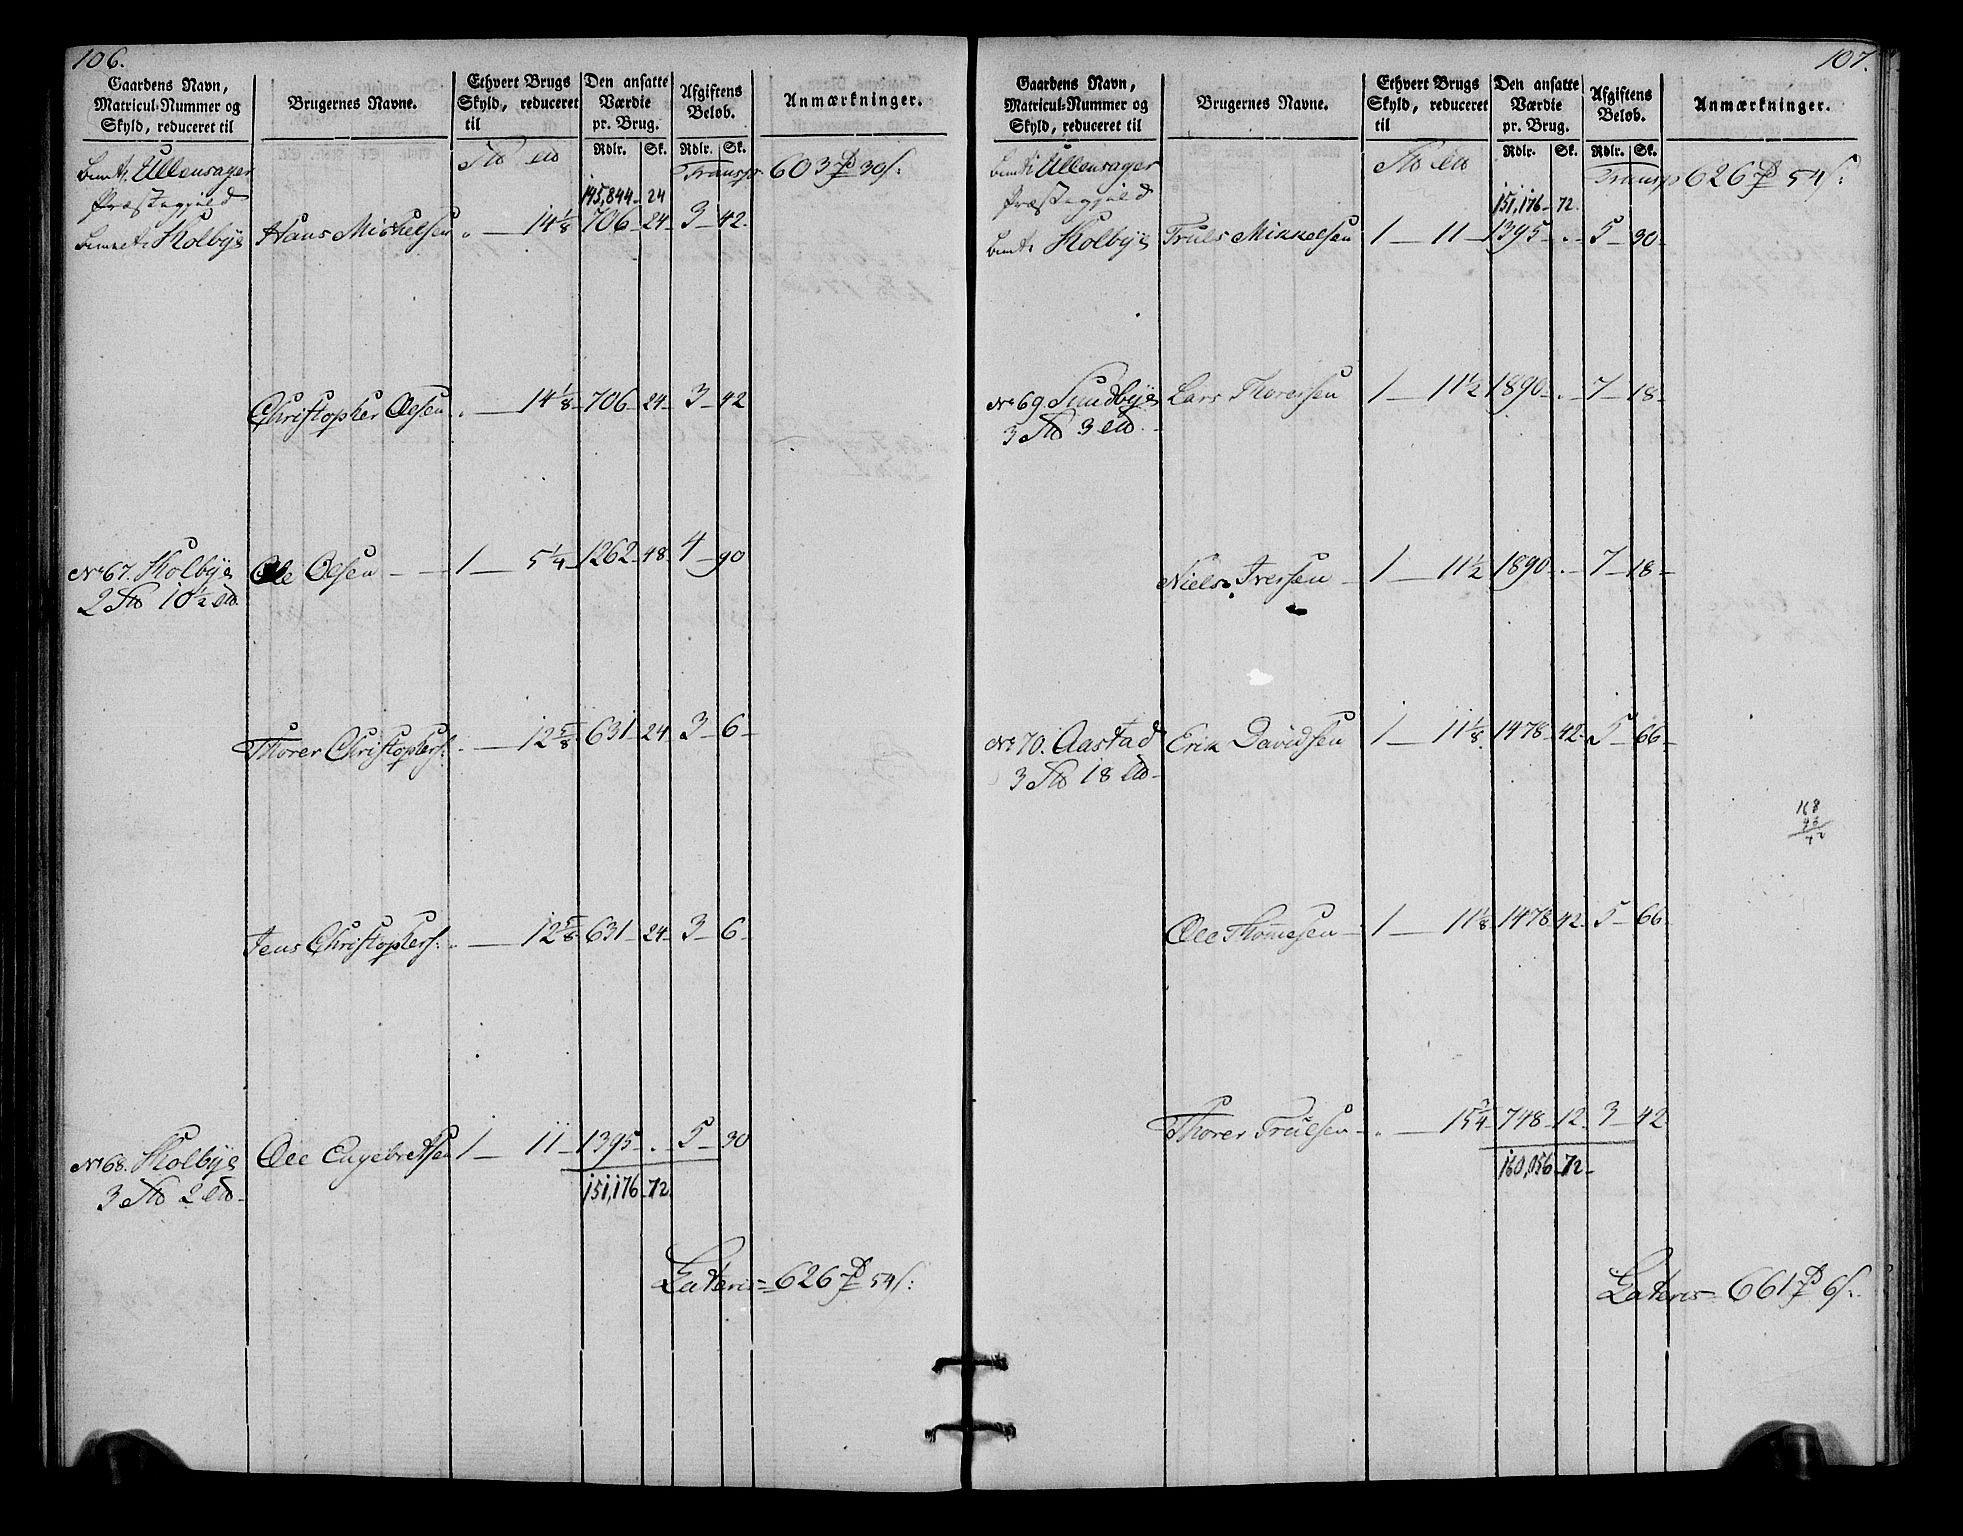 106.
Gaardens Navn, Matricul-Nummer og Skyld, reduceret til
Brugernes Navne.
Ethvert Brugs Skyld, reduceret til
Den ansatte Værdie pr. Brug.
Afgiftens Beløb.
Anmærkninger.
Rdlr. Sk. Rdlr. Sk.
Ullensager Transp 603 30
Præstegield 145,844 - 24
Kolbye Hans Mickelsen „ — 14 1/8 706 - 24 - 3 - 42.
Christopher Olesen „ — 14 1/8 - 706 - 24 - 3 - 42
No 67. Kolbye Ole Olsen — 1 — 5 1/4 - 1262 - 48 4 - 90
2 10 1/2
Thorer Christophers: „ — 12 5/8 631 - 24 - 3 - 6 -
Jens Christophers: „ — 12 5/8 - 631 - 24 - 3 - 6 -
No 68. Kolbye Ole Engebretsen 1 — 11 - 1395 - . 5 - 30
3 2
151,176 - 72
Lateris = 626 54
107.
Gaardens Navn, Matricul-Nummer og Skyld, reduceret til
Brugernes Navne.
Ethvert Brugs Skyld, reduceret til
Den ansatte Værdie pr. Brug.
Afgiftens Beløb.
Anmærkninger.
Rdlr. Sk. Rdlr. Sk.
Ullensager Transp 626 54
Præstegield 151,176 - 72.
Kolbye Truls Mikkelsen 1 — 11 - 1395 - . - 5 - 30 -
No 69 Sundbye Lars Thorersen 1 — 11 1/2 1890 - . - 7 - 18 -
3 3
Niels Iversen - 1 — 11 1/2 1890 - . - 7 - 18 -
No 70. Aastad Erik Davidsen 1 — 11 1/8 1478 - 42 - 5 - 66 -
3 18
168
96
72
Ole Thomesen - 1 — 11 1/8 1478 - 42 - 5 - 66 -
Thorer Trulsen - „ — 15 3/4 748 - 12 - 3 - 42
160,056 - 72 -
Lateris = 661 6